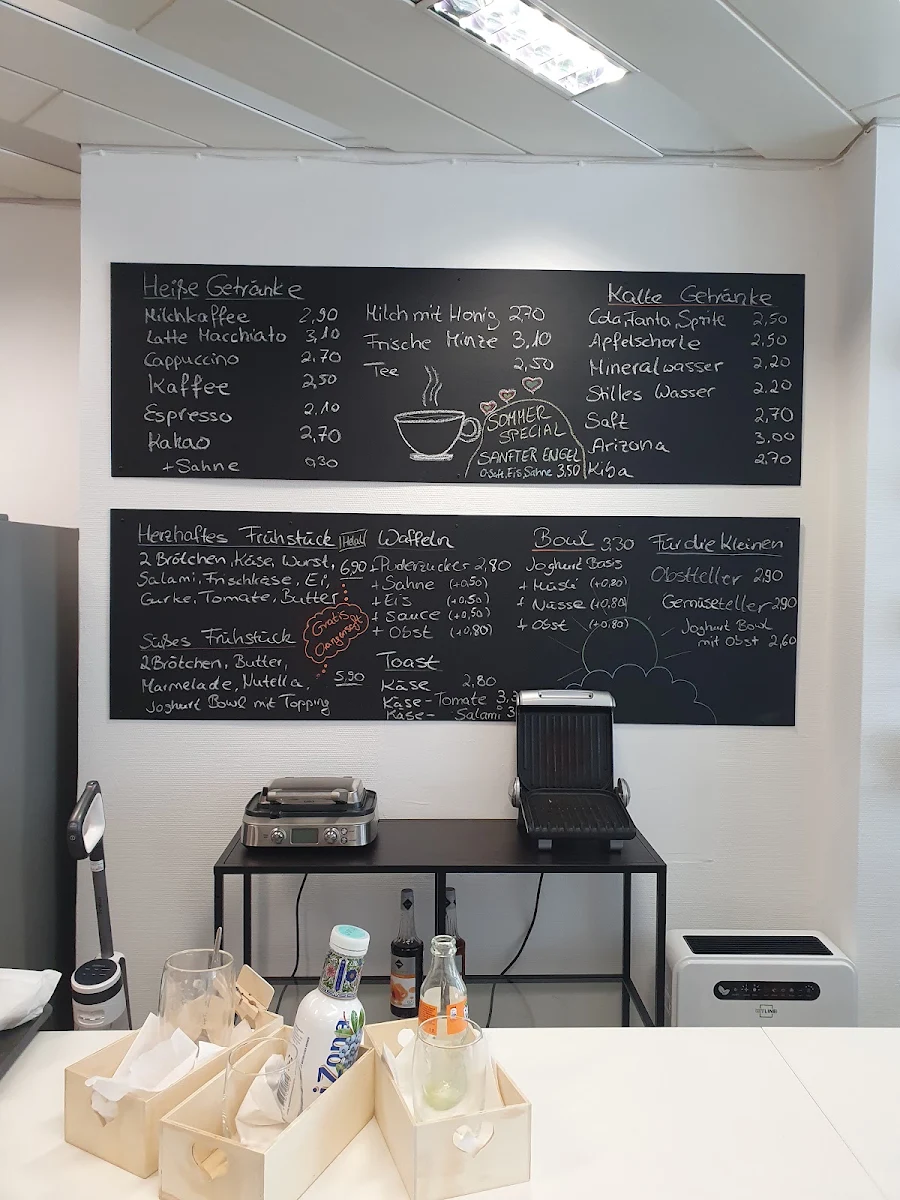 Heiße Getränke
Milchkaffee 2,90
Latte Macchiato 3,10
Cappuccino 2,70
Kaffee 2,50
Espresso 2,10
Kakao 2,70
+ Sahne 0,30
Milch mit Honig 2,70
Frische Minze 3,10
Tee 2,50
SOMMER
SPECIAL
SANFTER ENGEL
O-Saft, Eis, Sahne 3,50
Kalte Getränke
Cola, Fanta, Sprite 2,50
Apfelschorle 2,50
Mineralwasser 2,20
Stilles Wasser 2,20
Saft 2,70
Arizona 3,00
KiBa 2,70
Herzhaftes Frühstück
2 Brötchen, Käse, Wurst, 6,90
Salami, Frischkäse, Ei,
Gurke, Tomate, Butter
Gratis
Orangensaft
Süßes Frühstück
2 Brötchen, Butter,
Marmelade, Nutella, 5,90
Joghurt Bowl mit Topping
Waffeln
Puderzucker 2,80
+ Sahne (+0,50)
+ Eis (+0,50)
+ Sauce (+0,50)
+ Obst (+0,80)
Toast
Käse 2,80
Käse-Tomate 3,3
Käse- Salami 3
Bowl 3,30
Joghurt Basis
+ Müsli (+0,80)
+ Nüsse (+0,80)
+ Obst (+0,80)
Für die Kleinen
Obstteller 2,90
Gemüseteller 2,90
Joghurt Bowl
mit Obst 2,60